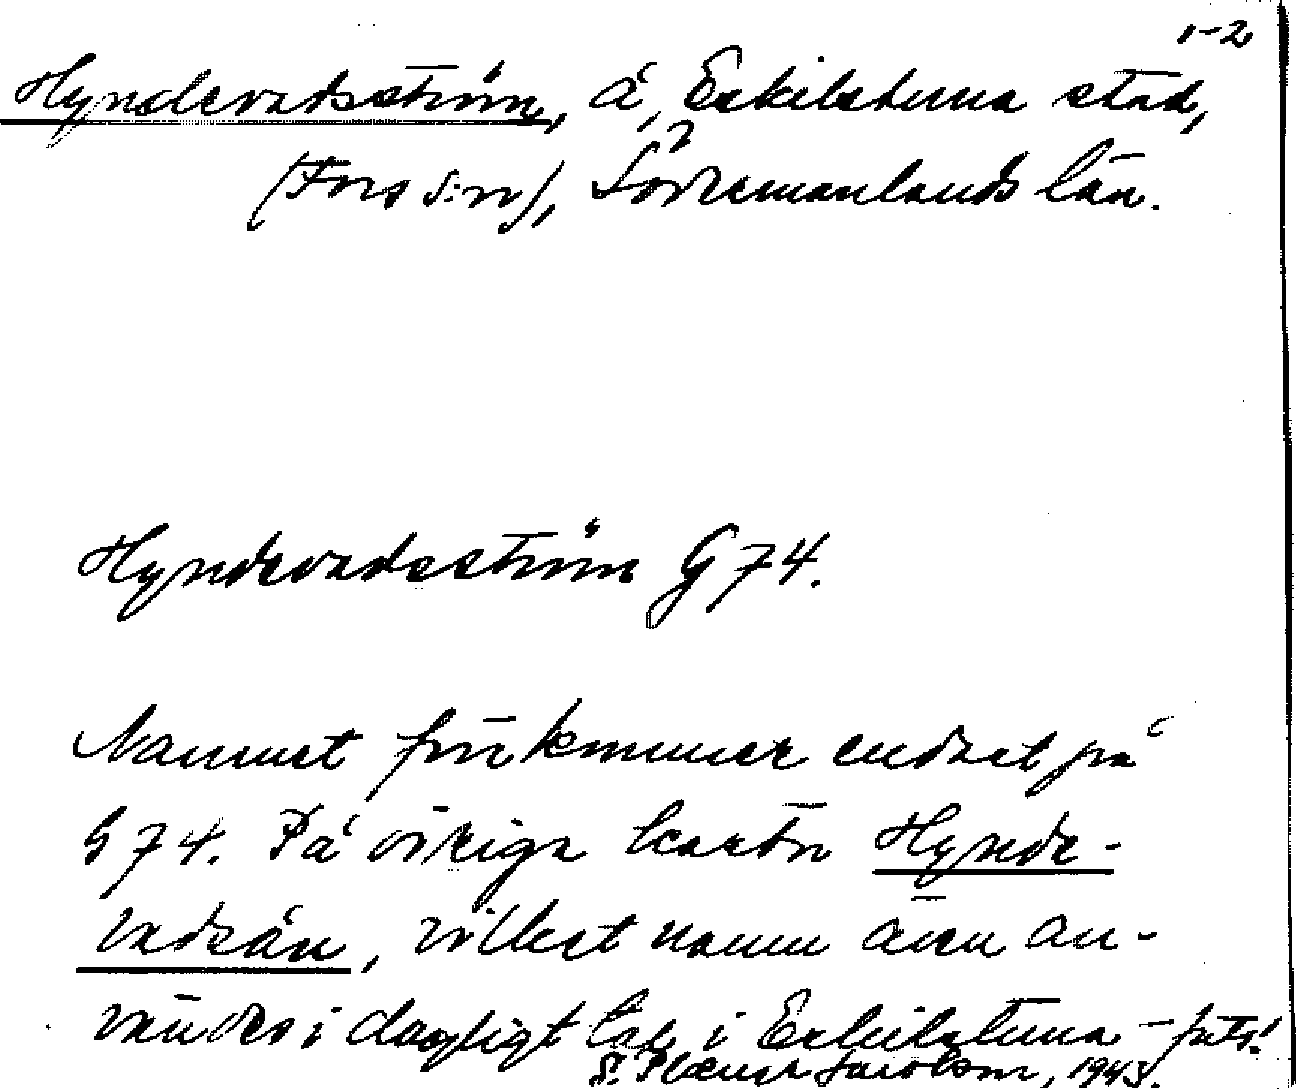 1-2
Hyndevadsström, å, Eskilstuna stad,
(Fors s:n)?, Södermanlands län.
Hyndevadsström G 74.
Namnet förekommer endast på
G 74. På övriga kartor Hynde-
vadsån, vilket namn även an-
vändes i dagligt tal i Eskilstuna – forts!
S. Jacobsson, 1945.